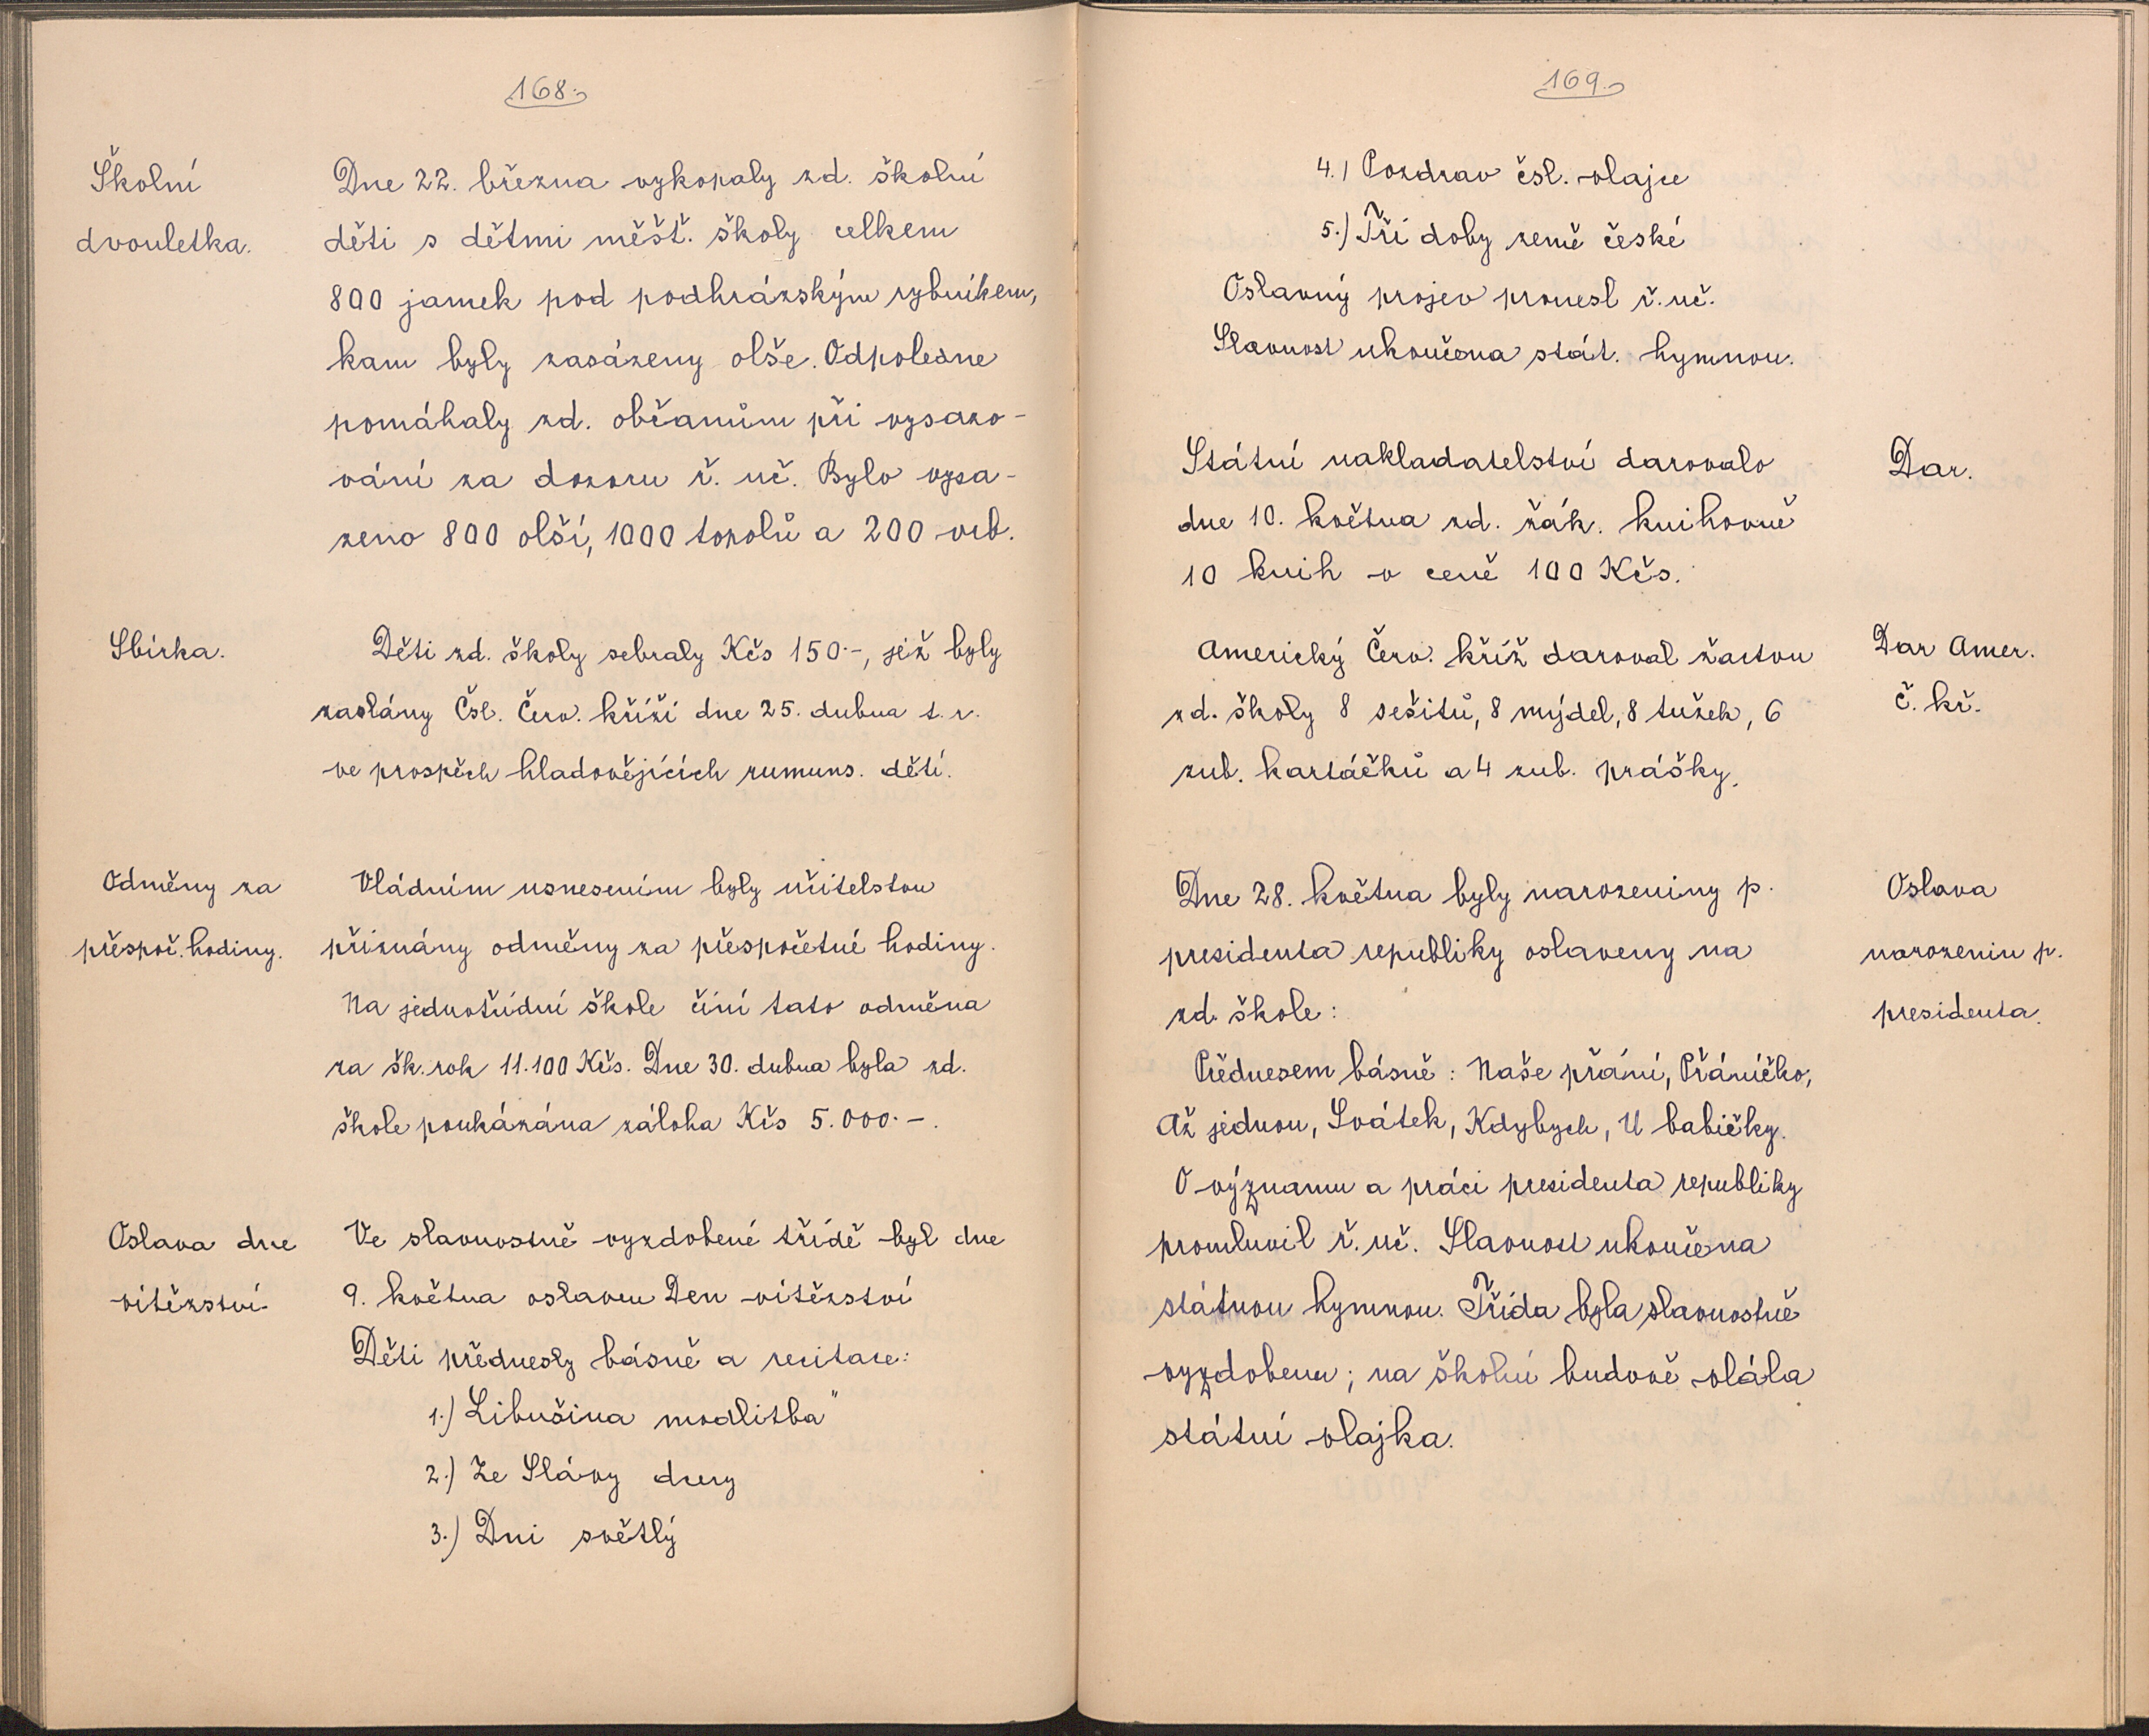 168.
Školní
dvouletka.
Dne 22. března vykopaly zd. školní
děti s dětmi měšť. školy celkem
800 jamek pod podhrázským rybníkem,
kam byly zasázeny olše. Odpoledne
pomáhaly zd. občanům při vysazo-
vání za dozoru ř. uč. Bylo vysa-
zeno 800 olší, 1000 topolů a 200 vrb.
Sbírka.
Děti zd. školy sebraly Kčs 150.-, jež byly
zaslány Čsl. Červ. kříži dne 25. dubna t. r.
ve prospěch hladovějících rumuns. dětí.
Odměny za
přespoč. hodiny.
Vládním usnesením byly učitelstvu
přiznány odměny za přespočetné hodiny.
Na jednotřídní škole činí tato odměna
za šk. rok 11.100 Kčs. Dne 30. dubna byla zd.
škole poukázána záloha Kčs 5.000.-.
Oslava dne
vítězství.
Ve slavnostně vyzdobené třídě byl dne
9. května oslaven Den vítězství
Děti přednesly básně a recitace:
1.) Libušina modlitba"
2.) Ze Slávy dcery
3.) Dni světlý
169.
4.) Pozdrav čsl. vlajce
5.) Tři doby země české
Oslavný projev pronesl ř. uč.
Slavnost ukončena stát. hymnou.
Státní nakladatelství darovalo
dne 10. května zd. žák. knihovně
10 knih v ceně 100 Kčs.
Dar.
Americký Červ. kříž daroval žactvu
zd. školy 8 sešitů, 8 mýdel, 8 tužek, 6
zub. kartáčků a 4 zub. prášky.
Dar Amer.
č. kř.
Dne 28. května byly narozeniny p.
presidenta republiky oslaveny na
zd. škole:
Oslava
narozenin p.
presidenta.
Přednesem básně: Naše přání, Přáníčko,
Až jednou, Svátek, Kdybych, U babičky.
O významu a práci presidenta republiky
promluvil ř. uč. Slavnost ukončena
státnou hymnou. Třída byla slavnostně
vyzdobena; na školní budově vlála
státní vlajka.